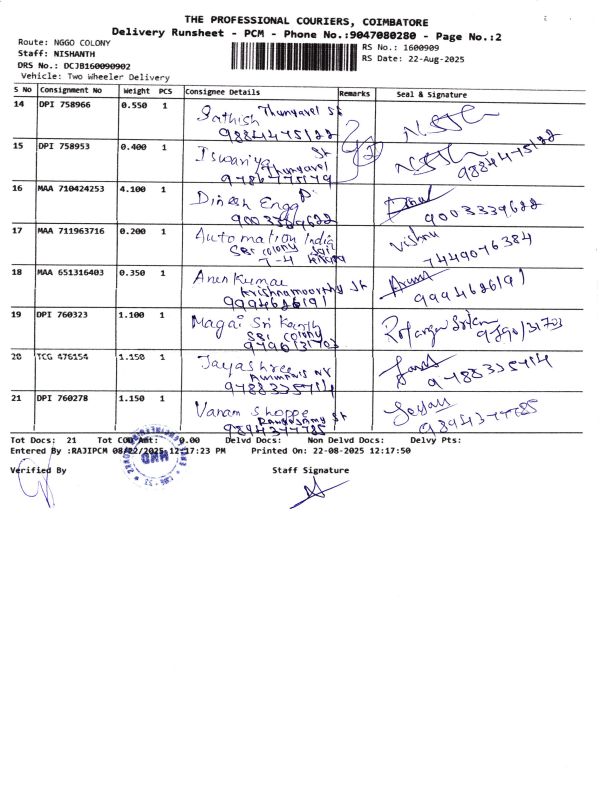 THE PROFESSIONAL COURIERS, COIMBATORE
Delivery Runsheet - PCM - Phone No.:9047080280 - Page No.:2
Route: NGGO COLONY
RS No.: 1600909
Staff: NISHANTH
RS Date: 22-Aug-2025
DRS No.: DCJB160090902
Vehicle: Two Wheeler Delivery
S No Consignment No Weight PCS Consignee Details Remarks Seal & Signature
14 DPI 758966 0.550 1 Sathish Thunyavel St
9884475122
15 DPI 758953 0.400 1 Iswariya St
Thunyavel
9786775179 9884475122
16 MAA 710424253 4.100 1 Dinesh Engg
9003339622 9003339622
17 MAA 711963716 0.200 1 Automation India Vishnu
SBI colony
7-4 7449076384
18 MAA 651316403 0.350 1 Arun Kumar Arun
Krishnamoorthy St
9994626191 9994626191
19 DPI 760323 1.100 1 Magai Sri
SBI colony
9790131703 9790131703
20 TCG 476154 1.150 1 Jayashree
9788335714 9788335714
21 DPI 760278 1.150 1 Varam Shoppe
Rangasamy St
9894377785 9894377785
Tot Docs: 21 Tot COD Amt: 0.00 Delvd Docs: Non Delvd Docs: Delvy Pts:
Entered By :RAJIPCM 08/22/2025 12:17:23 PM Printed On: 22-08-2025 12:17:50
Verified By Staff Signature